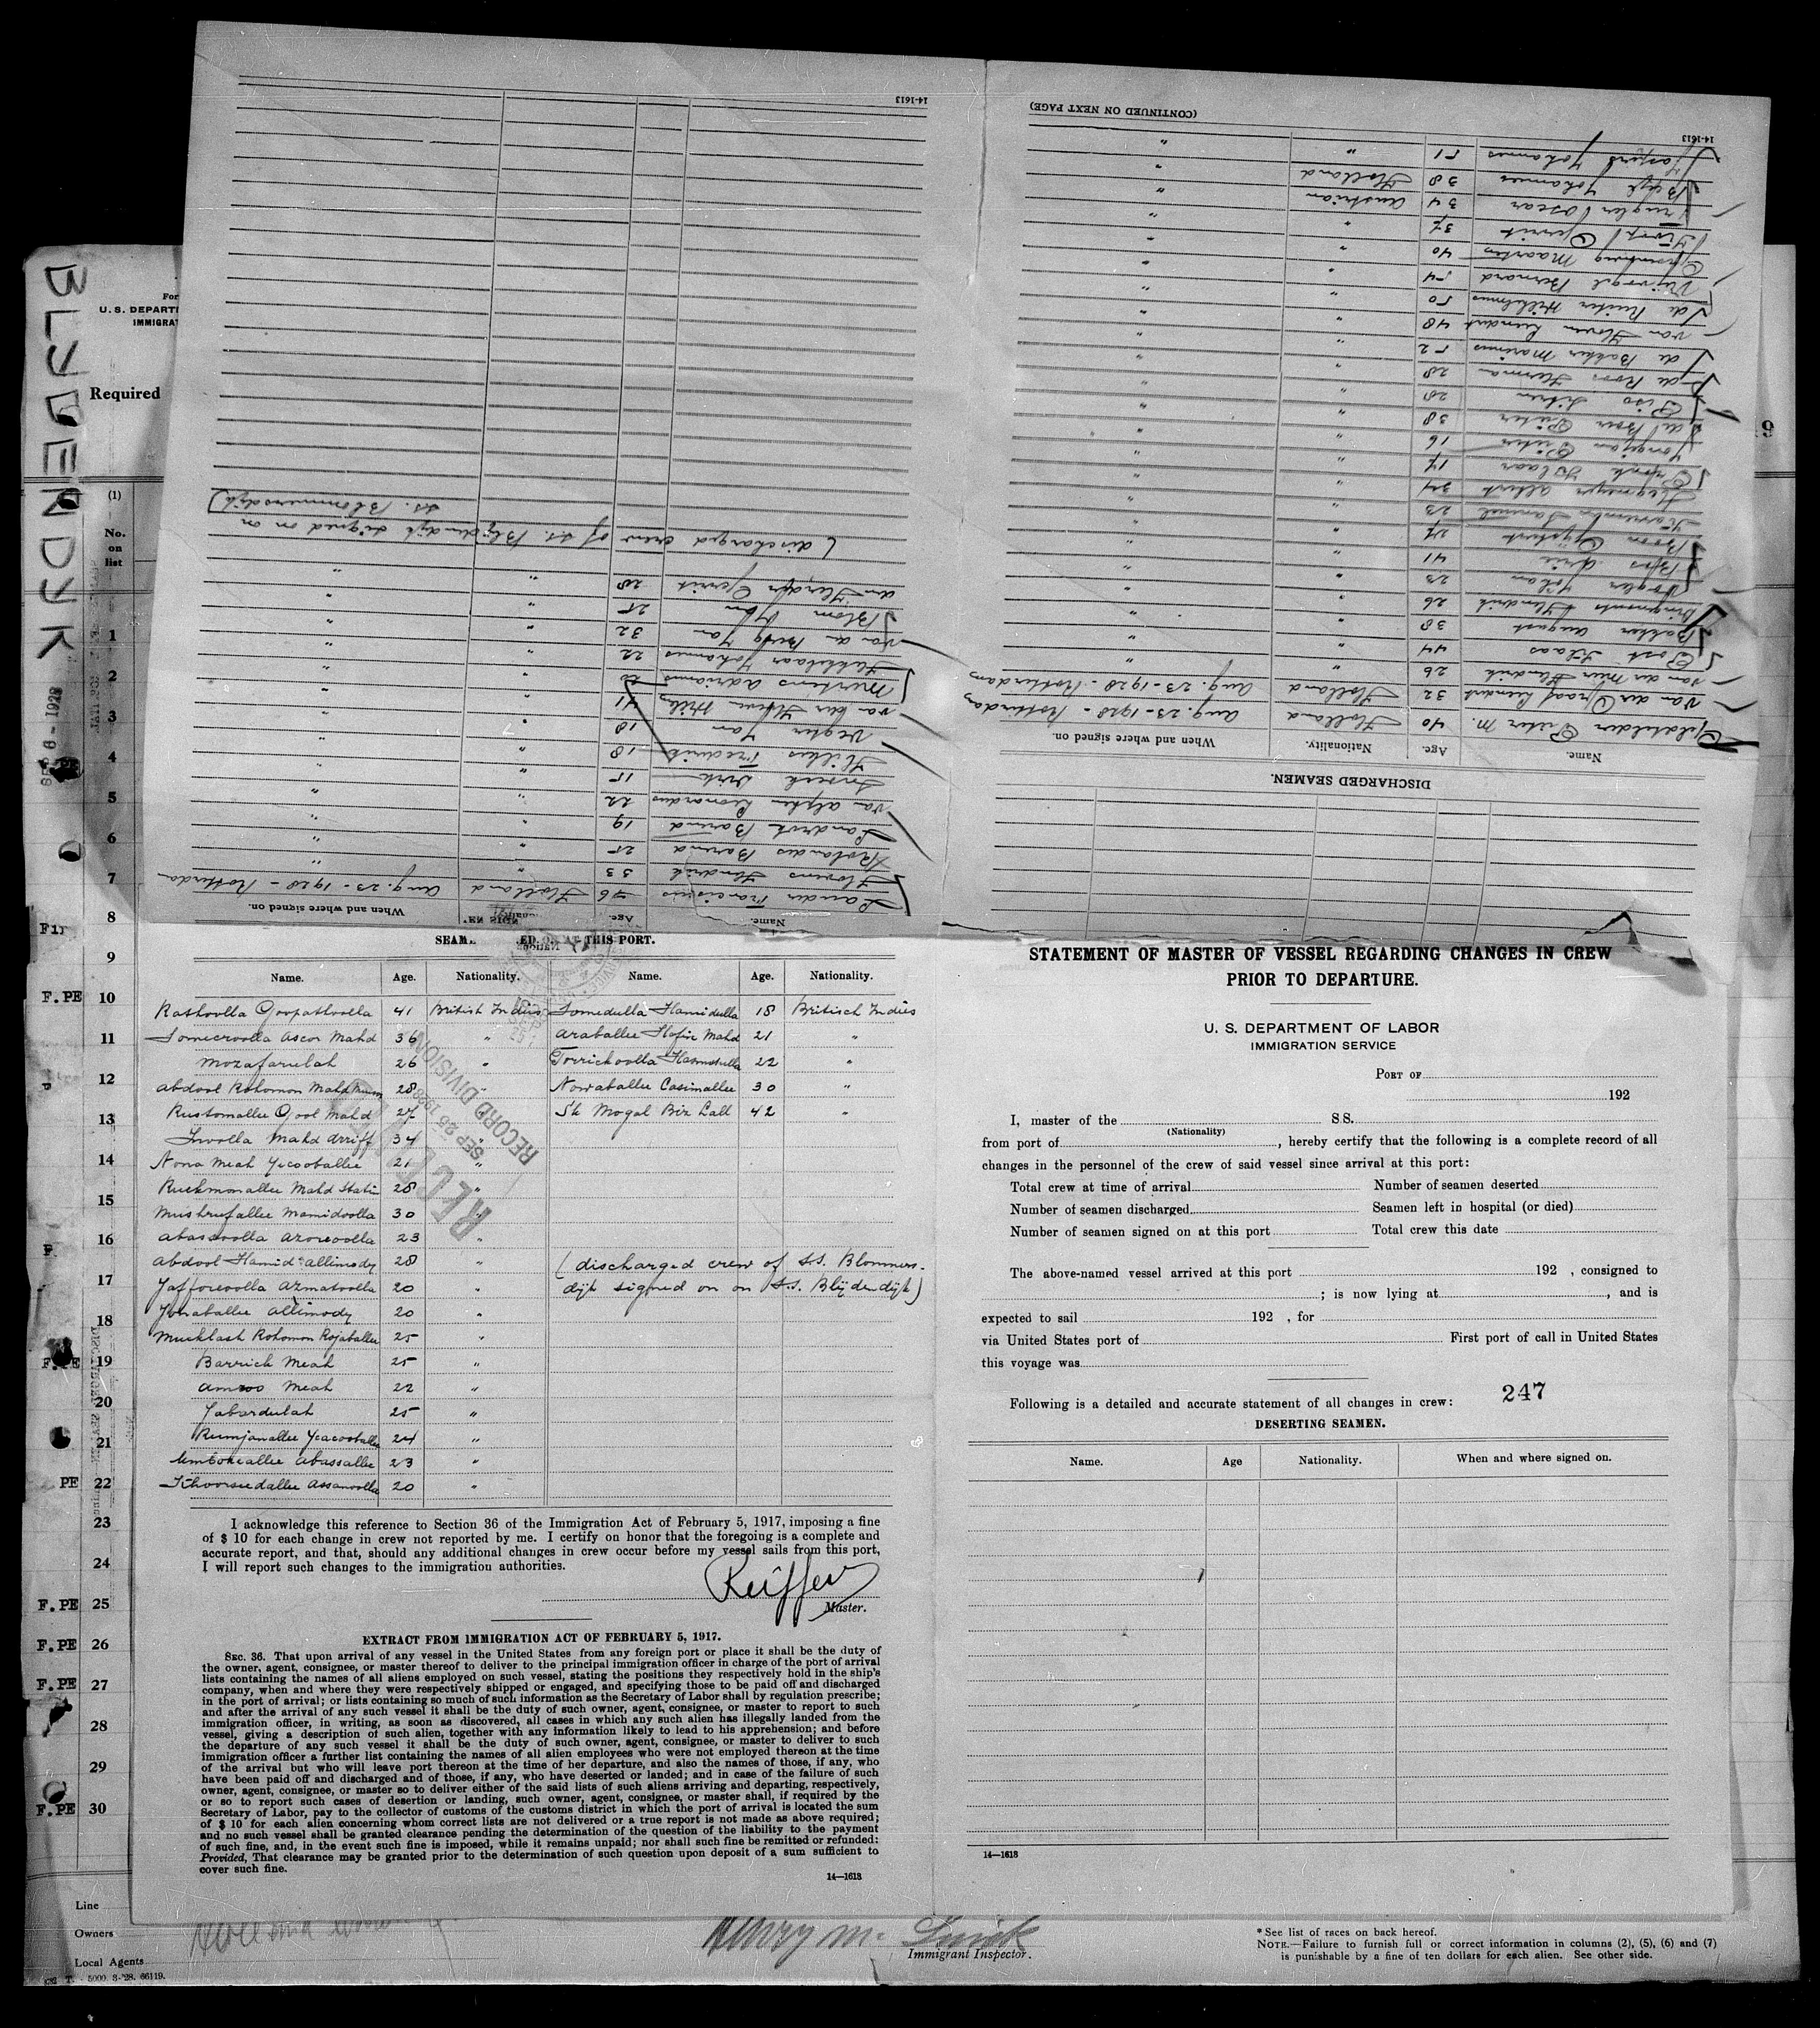 BLYDENDYK
U. S. DEPART
IMMIGRAT
Required
(1)
No.
on
list
1
2
3
4
5
6
7
8
9
10
11
12
13
14
15
16
17
18
19
20
21
22
23
24
25
26
27
28
29
30
F. PE
F. PE
PE
F. PE
F. PE
F. PE
F. PE
14-1613
(CONTINUED ON NEXT PAGE)
DISCHARGED SEAMEN.
Name. Age. Nationality. When and where signed on.
Pieter M. 40 Holland Aug. 23-1928 - Rotterdam
van der Graaf Leendert 32 Holland Aug. 23-1928 - Rotterdam
van der Meer Hendrik 26 " "
Post Klaas 44
Bakker August 38 "
Hendrik 26 "
Vogler Johan 23 "
Bos Arie 41 "
Boom Gijsbert 27 "
Samuel 23 "
Hegmeyer Albert 34 "
Klaas 17 "
Jongejan Pieter 16 "
de Boer Pieter 38 "
28 "
de Roos Herman 28 "
de Bakker Marinus 52 "
van Hoven Leendert 48 "
de Ruiter Willelmus 50 "
Bernard 54 "
Maarten 40 "
Gerrit 37 "
Oscar 34 Austrian "
Johannes 38 Holland "
Johannes 51 " "
14-1613
Name. Age. When and where signed on.
Sander Franciscus 46 Holland Aug. 23-1928 - Rotterdam
Hovens Hendrik 33 " "
Rolandus Barend 25 " "
Barend 19 " "
van Alphen Leonardus 22 " "
Dirk 15 " "
Hilkes Frederik 18 " "
Vegter Jan 18 " "
van der Hoeven 41 " "
Mertens Adrianus " "
Hekkelaar Johannes 22 " "
van den Berg Jan 32 " "
Blom 25 " "
Gerrit 28 " "
(discharged crew of ss. Blijdendijk signed on on
ss. Blommersdijk)
THIS PORT.
Name. Age. Nationality. Name. Age. Nationality.
Rashoolla Goopathoolla 41 British Indies Somedulla Hamidulla 18 Britisch Indies
Somecroolla Ascor Mahd 36 " Araballee Hofiz Mahd 21 "
Mozafarulah 26 " Torrichoolla 22 "
Abdool Rohomon Mahd 28 " Nowaballee Casimallee 30 "
Rustomallee Gool Mahd 27 Sk Mogal Bix Lall 42 "
Mahd Arriff 34 "
Nona Meah Yecooballee 21 "
Ruckmonallee Mahd 28 "
Mushrufallee Mamidoolla 30
Abasoolla Azoroolla 23 "
Abdool Hamid Allimody 28 " (discharged crew of S.S. Blommers-
Jafforoolla Azmatoolla 20 " dijk signed on on S.S. Blijdendijk)
Jonaballee Allimody 20 "
Mucklash Rohomon Rojaballee 25 "
Barrick Meah 25 "
Amroo Meah 22 "
Jabardulah 25 "
Rumjanallee Yeacooballee 24 "
Abassallee 23 "
Khoorsuedallee Assanoolla 20 "
RECEIVED
SEP 26 1928
RECORD DIVISION
I acknowledge this reference to Section 36 of the Immigration Act of February 5, 1917, imposing a fine
of $ 10 for each change in crew not reported by me. I certify on honor that the foregoing is a complete and
accurate report, and that, should any additional changes in crew occur before my vessel sails from this port,
I will report such changes to the immigration authorities.
Master.
EXTRACT FROM IMMIGRATION ACT OF FEBRUARY 5, 1917.
SEC. 36. That upon arrival of any vessel in the United States from any foreign port or place it shall be the duty of
the owner, agent, consignee, or master thereof to deliver to the principal immigration officer in charge of the port of arrival
lists containing the names of all aliens employed on such vessel, stating the positions they respectively hold in the ship's
company, when and where they were respectively shipped or engaged, and specifying those to be paid off and discharged
in the port of arrival; or lists containing so much of such information as the Secretary of Labor shall by regulation prescribe;
and after the arrival of any such vessel it shall be the duty of such owner, agent, consignee, or master to report to such
immigration officer, in writing, as soon as discovered, all cases in which any such alien has illegally landed from the
vessel, giving a description of such alien, together with any information likely to lead to his apprehension; and before
the departure of any such vessel it shall be the duty of such owner, agent, consignee, or master to deliver to such
immigration officer a further list containing the names of all alien employees who were not employed thereon at the time
of the arrival but who will leave port thereon at the time of her departure, and also the names of those, if any, who
have been paid off and discharged and of those, if any, who have deserted or landed; and in case of the failure of such
owner, agent, consignee, or master so to deliver either of the said lists of such aliens arriving and departing, respectively,
or so to report such cases of desertion or landing, such owner, agent, consignee, or master shall, if required by the
Secretary of Labor, pay to the collector of customs of the customs district in which the port of arrival is located the sum
of $ 10 for each alien concerning whom correct lists are not delivered or a true report is not made as above required;
and no such vessel shall be granted clearance pending the determination of the question of the liability to the payment
of such fine, and, in the event such fine is imposed, while it remains unpaid; nor shall such fine be remitted or refunded:
Provided, That clearance may be granted prior to the determination of such question upon deposit of a sum sufficient to
cover such fine.
14—1613
STATEMENT OF MASTER OF VESSEL REGARDING CHANGES IN CREW
PRIOR TO DEPARTURE.
U. S. DEPARTMENT OF LABOR
IMMIGRATION SERVICE
PORT OF
192
I, master of the SS.
(Nationality)
from port of , hereby certify that the following is a complete record of all
changes in the personnel of the crew of said vessel since arrival at this port:
Total crew at time of arrival Number of seamen deserted
Number of seamen discharged Seamen left in hospital (or died)
Number of seamen signed on at this port Total crew this date
The above-named vessel arrived at this port 192 , consigned to
; is now lying at , and is
expected to sail 192 , for
via United States port of First port of call in United States
this voyage was
247
Following is a detailed and accurate statement of all changes in crew:
DESERTING SEAMEN.
Name. Age Nationality. When and where signed on.
14—1613
Line
Owners
Local Agents
5000 3-'28. 66119.
Henry M.
Immigrant Inspector.
* See list of races on back hereof.
NOTE.—Failure to furnish full or correct information in columns (2), (5), (6) and (7)
is punishable by a fine of ten dollars for each alien. See other side.